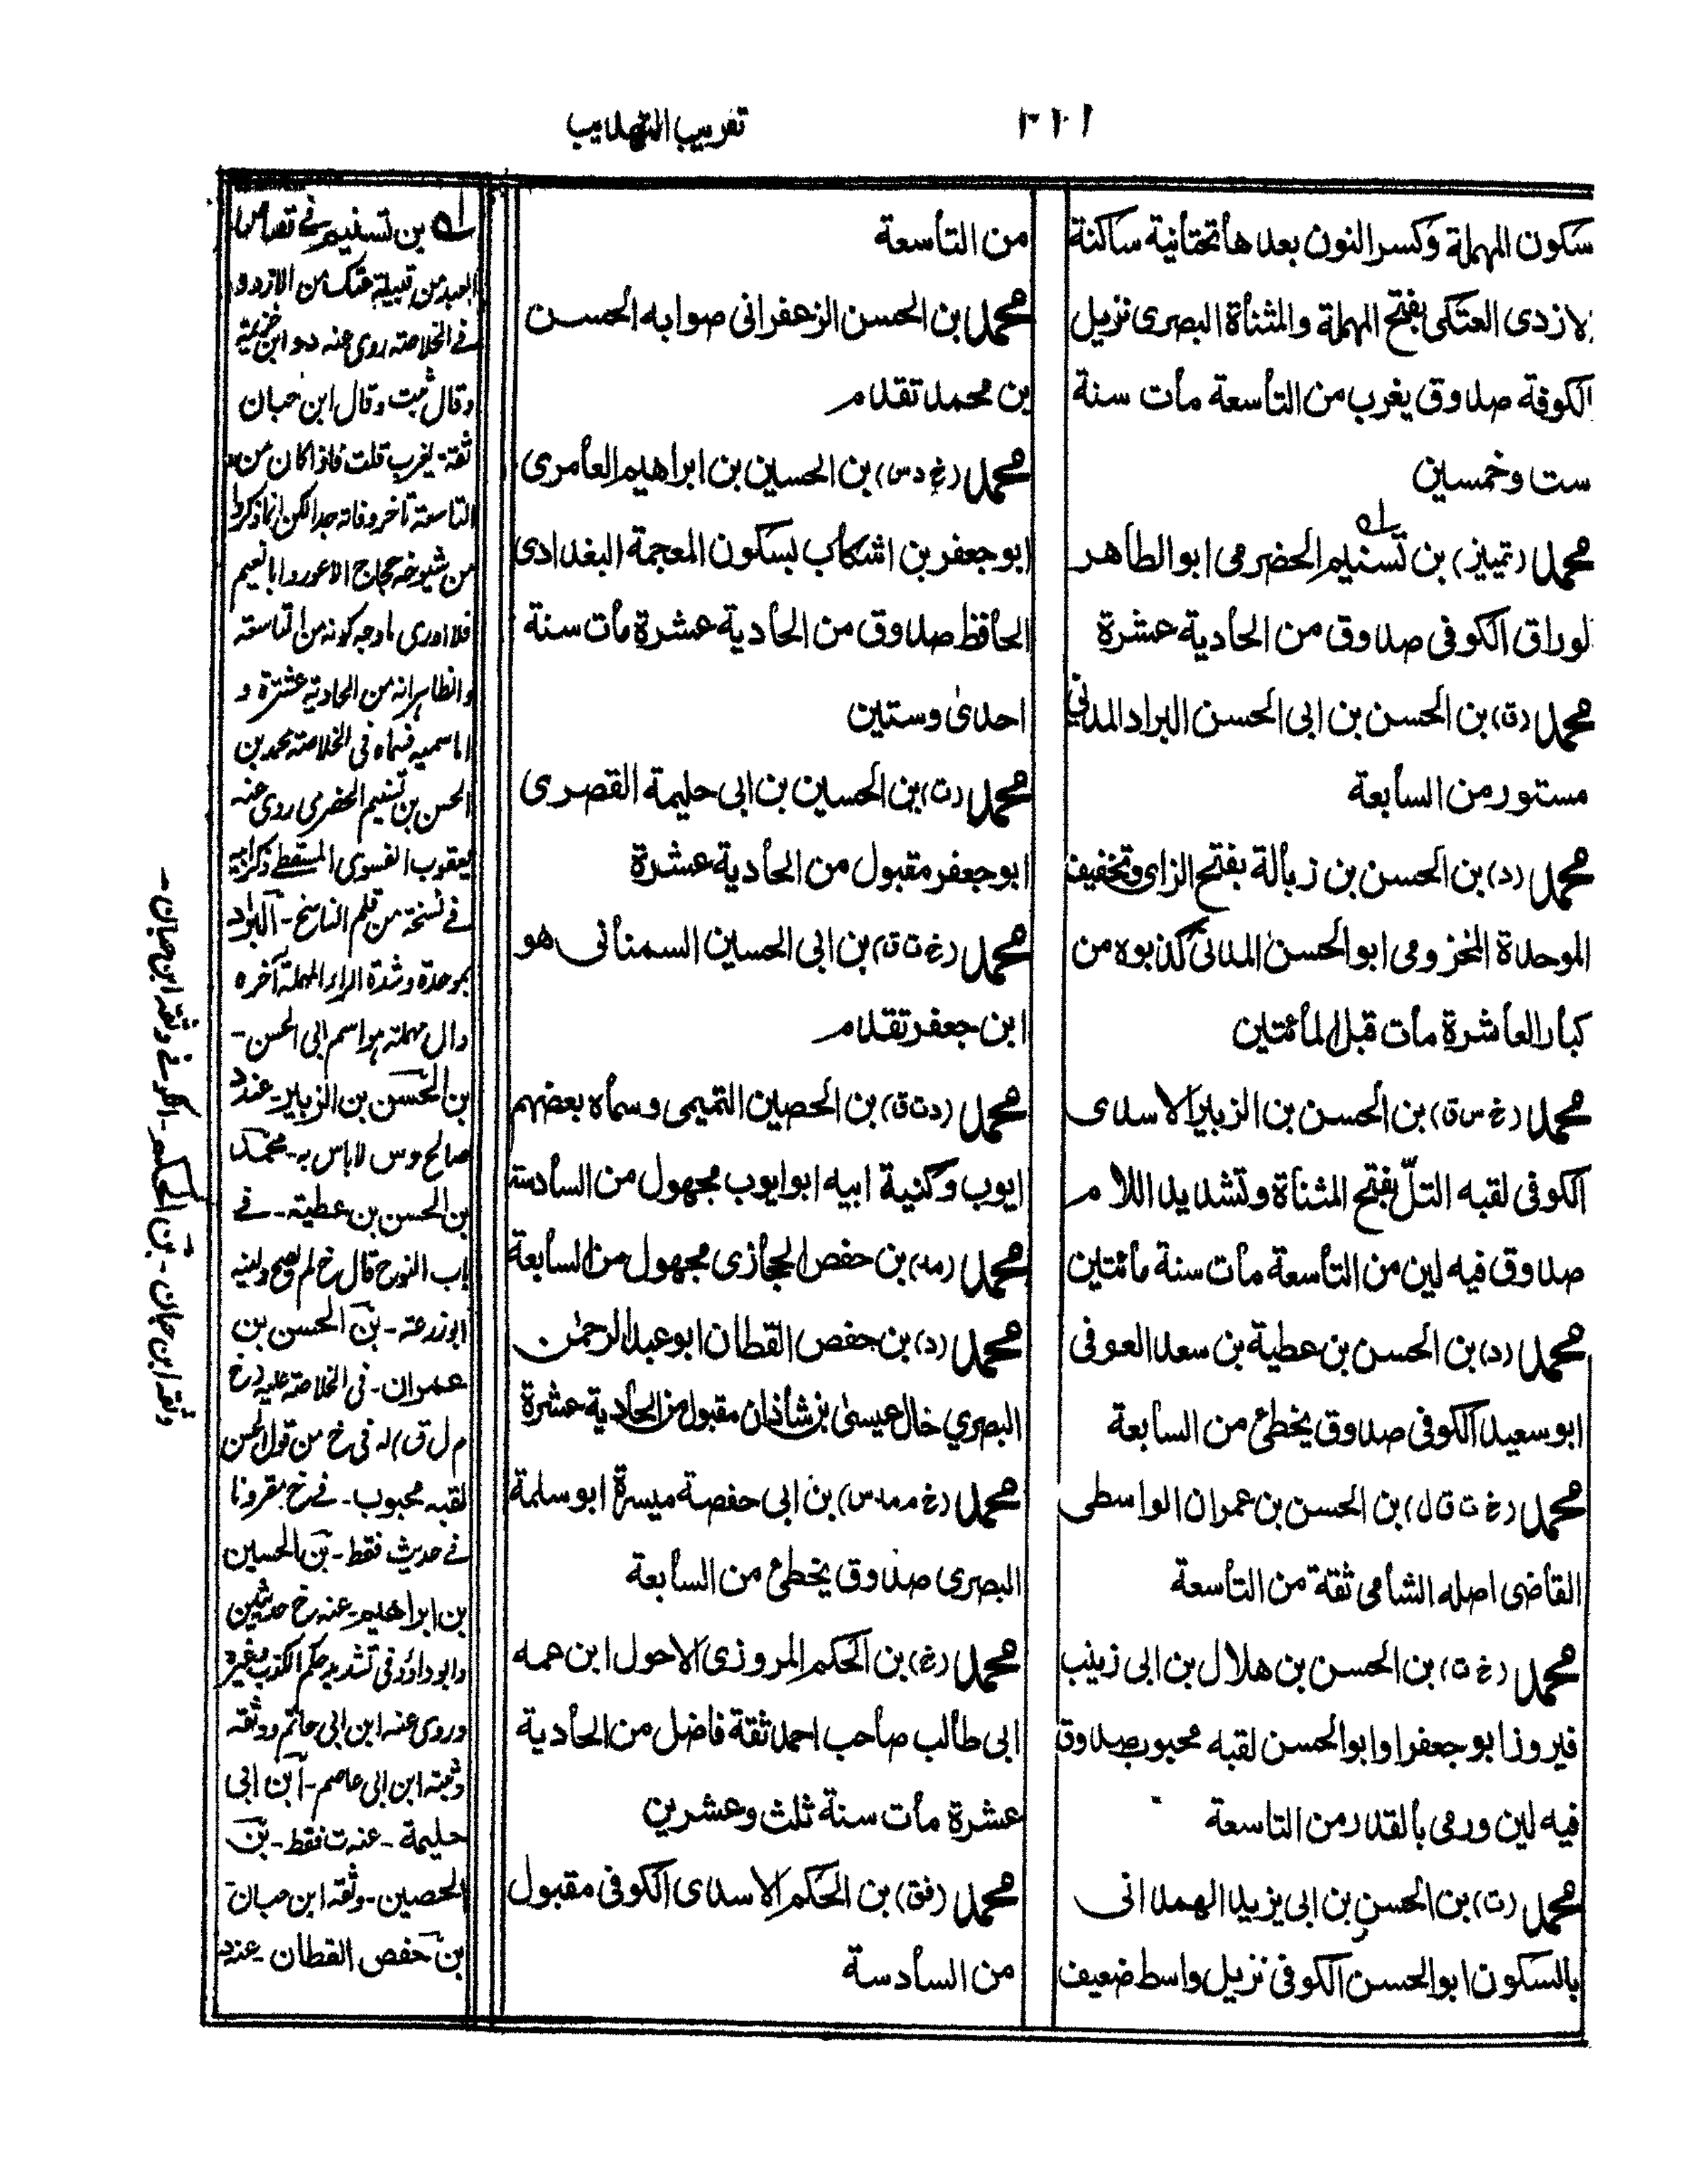 تقريب التهذيب
٣٢١
سكون المهملة وكسر النون بعدها تحتانية ساكنة
الازدى العتكى بفتح المهملة والمثناة البصرى نزيل
الكوفة صدوق يغرب من التاسعة مات سنة
ست وخمسين
محمد (تمييز) بن تسنيم الحضرمى ابو الطاهر
الوراق الكوفى صدوق من الحادية عشرة
محمد (ق) بن الحسن بن ابى الحسن البراد المدنى
مستور من السابعة
محمد (د) بن الحسن بن زبالة بفتح الزاى وتخفيف
الموحدة المخزومى ابو الحسن المدنى كذبوه من
كبار العاشرة مات قبل المائتين
محمد (خ س ق) بن الحسن بن الزبير الاسدى
الكوفى لقبه التلّ بفتح المثناة وتشديد اللام
صدوق فيه لين من التاسعة مات سنة مائتين
محمد (د) بن الحسن بن عطية بن سعد العوفى
ابو سعيد الكوفى صدوق يخطئ من السابعة
محمد (خ ت ق ل) بن الحسن بن عمران الواسطى
القاضى اصله الشامى ثقة من التاسعة
محمد (خ ت) بن الحسن بن هلال بن ابى زينب
فيروز ابو جعفر او ابو الحسن لقبه محبوب صدوق
فيه لين ورمى بالقدر من التاسعة
محمد (ت) بن الحسن بن ابى يزيد الهمدانى
بالسكون ابو الحسن الكوفى نزيل واسط ضعيف
من التاسعة
محمد بن الحسن الزعفرانى صوابه الحسن
بن محمد تقدم
محمد (خ د س) بن الحسين بن ابراهيم العامرى
ابو جعفر بن اشكاب بسكون المعجمة البغدادى
الحافظ صدوق من الحادية عشرة مات سنة
احدى وستين
محمد (ت) بن الحسين بن ابى حليمة القصرى
ابو جعفر مقبول من الحادية عشرة
محمد (خ ت ق) بن ابى الحسين السمنانى هو
ابن جعفر تقدم
محمد (د ت ق) بن الحصين التميمى وسماه بعضهم
ايوب وكنية ابيه ابو ايوب مجهول من السادسة
محمد (مد) بن حفص الحجازى مجهول من السابعة
محمد (د) بن حفص القطان ابو عبد الرحمٰن
البصري خال عيسىٰ بن شاذان مقبول من الحادية عشرة
محمد (خ م مد س) بن ابى حفصة ميسرة ابو سلمة
البصرى صدوق يخطئ من السابعة
محمد (خ) بن الحكم المروزى الاحول ابن عمه
ابى طالب صاحب احمد ثقة فاضل من الحادية
عشرة مات سنة ثلث وعشرين
محمد (فق) بن الحكم الاسدى الكوفى مقبول
من السادسة
له بن تسنيم فى
العبد من قبيلة عتك من الازد و
فى الخلاصة روى عنه د و ابن خزيمة
وقال ثبت وقال ابن حبان
ثقة يغرب قلت فاذا كان من
التاسعة تاخر وفاته جدا لكن انما ذكروا
من شيوخه حجاج الاعور وابا نعيم
فلا ادرى ما وجه كونه من التاسعة
والظاهر انه من الحادية عشرة و
اما سميه فسماه فى الخلاصة محمد بن
الحسن بن تسنيم الحضرمى روى عنه
يعقوب الفسوى
فى نسخة من قلم الناسخ - البراد
بموحدة وشدة الراء المهملة آخره
دال مهملة هو اسم ابى الحسن -
بن الحسن بن الزبير - عند
صالح وس لاباس به - محمد
بن الحسن بن عطية - فى
باب النوح قال خ لم يصح ولينه
ابو زرعة - بن الحسن بن
عمران - فى الخلاصة عليه (خ
م ل ق) له فى خ من قول الحسن
لقبه محبوب - فى خ مقرونا
فى حديث فقط - بن الحسين
بن ابراهيم - عنه خ حديثين
وابو داؤد فى
وروى عنه ابن ابى حاتم ووثقه
وثبته ابن ابى عاصم - ابن ابى
حليمة - عنه ت فقط - بن
الحصين - وثقه ابن حبان
بن حفص القطان - عند
وثقه ابن حبان - بن الحكم - وثقه ابن حبان -